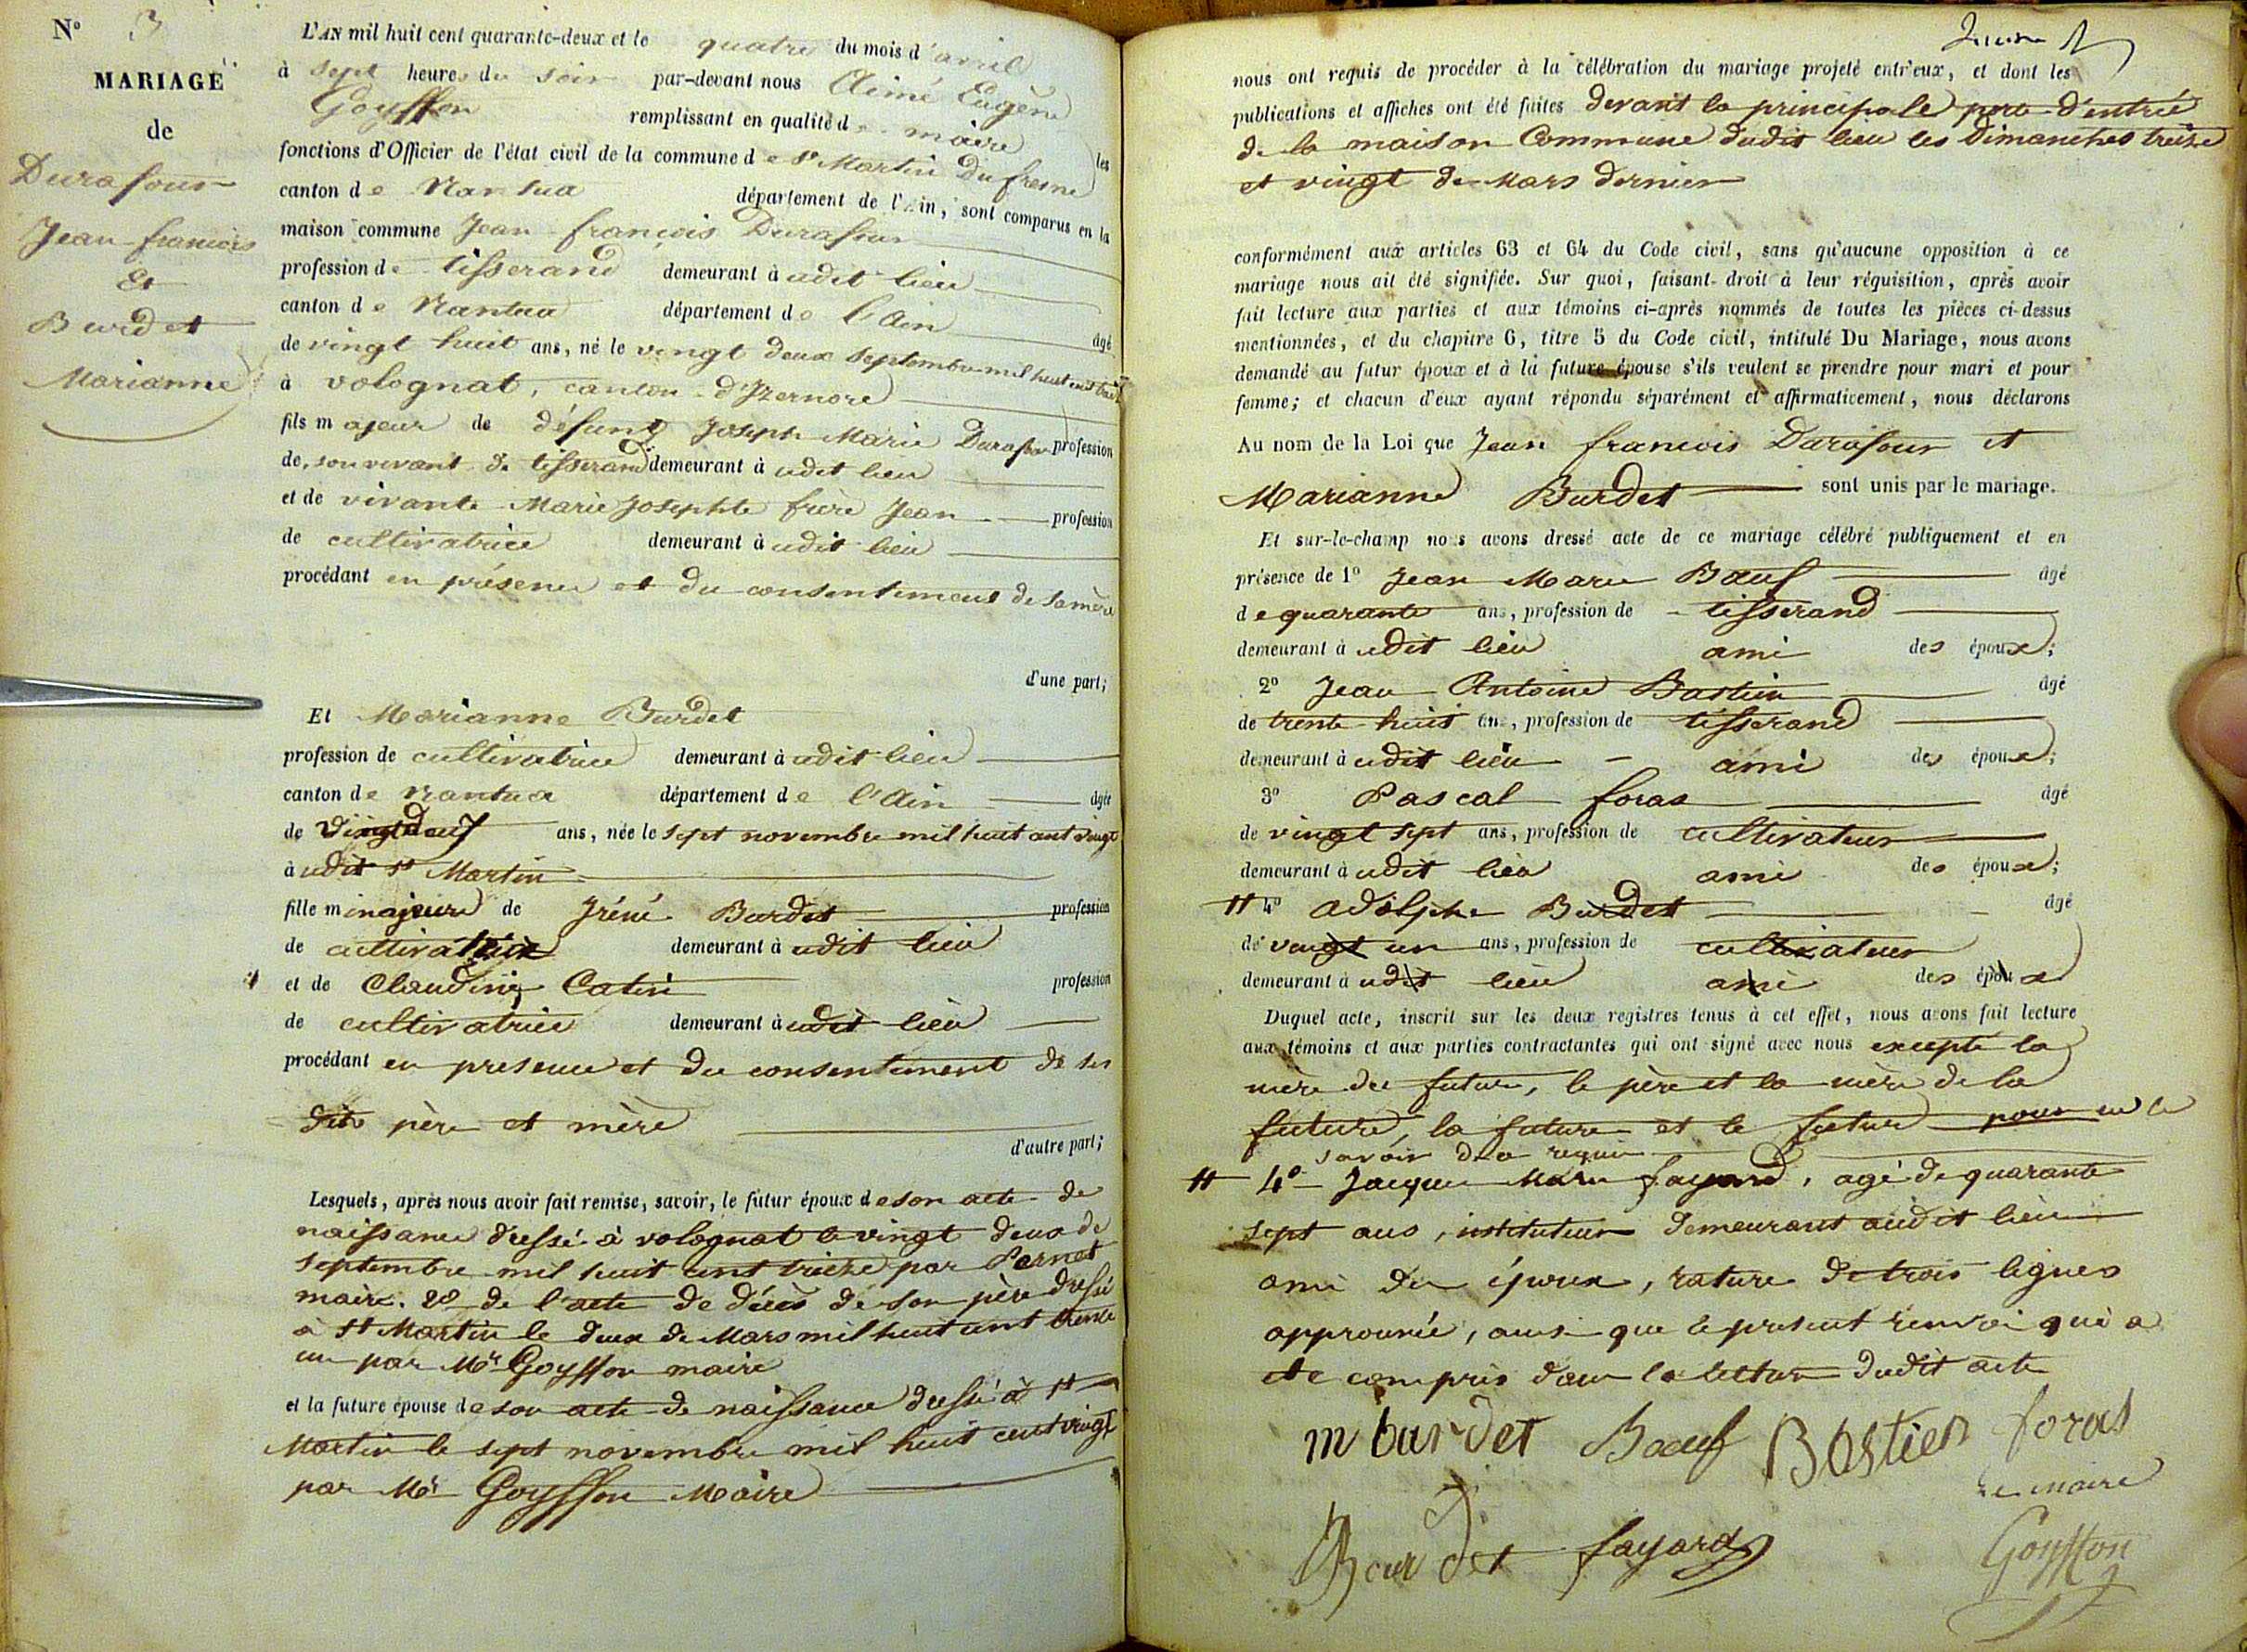 N° 3
MARIAGE
de
Durafour
Jean francois
Et
Burdet
Marianne
L'AN mil huit cent quarante-deux et le quatre du mois d'avril
à sept heures du soir par-devant nous Aimé Eugène
Goyffon remplissant en qualité de maire les
fonctions d'Officier de l'état civil de la commune de St Martin Dufresne
canton de Nantua département de l'Ain, sont comparus en la
maison commune Jean françois Durafour
profession de tisserand demeurant à udit lieu
canton de Nantua département de l'Ain âgé
de vingt huit ans, né le vingt deux septembre mil huit cent treize
à volognat, canton d'Izernore
fils majeur de défunt Joseph Marie Durafour profession
de, son vivant de tisserand demeurant à udit lieu
et de vivante Marie Josephte frère Jean profession
de cultivatrice demeurant à udit lieu
procédant en présence et du consentement de sa mère
d'une part;
Et Marianne Burdet
profession de cultivatrice demeurant à udit lieu
canton de Nantua département de l'Ain âgée
de ans, née le sept novembre mil huit cent vingt
à udit St Martin
fille majeure de Iréné Burdet profession
de demeurant à udit lieu
et de Claudine Catin profession
de cultivatrice demeurant à udit lieu
procédant en presence et du consentement de ses
dits père et mère
d'autre part;
Lesquels, après nous avoir fait remise, savoir, le futur époux de son acte de
naissance dressé à volognat le vingt deux de
septembre mil huit cent treize par Pernet
maire. 2° de l'acte de décès de son père dressé
à St Martin le deux de Mars mil huit cent trente
un par Mr Goyffon maire
et la future épouse de son acte de naissance dressé à St
Martin le sept novembre mil huit cent vingt
par Mr Goyffon Maire
nous ont requis de procéder à la célébration du mariage projeté entr'eux, et dont les
publications et affiches ont été faites devant la principale porte d'entrée
de la maison Commune dudit lieu les Dimanches treize
et vingt de Mars dernier
conformément aux articles 63 et 64 du Code civil, sans qu'aucune opposition à ce
mariage nous ait été signifiée. Sur quoi, faisant droit à leur réquisition, après avoir
fait lecture aux parties et aux témoins ci-après nommés de toutes les pièces ci-dessus
mentionnées, et du chapitre 6, titre 5 du Code civil, intitulé Du Mariage, nous avons
demandé au futur époux et à la future épouse s'ils veulent se prendre pour mari et pour
femme; et chacun d'eux ayant répondu séparément et affirmativement, nous déclarons
Au nom de la Loi que Jean francois Durafour et
Marianne Burdet sont unis par le mariage.
Et sur-le-champ nous avons dressé acte de ce mariage célébré publiquement et en
présence de 1° Jean Marie Bœuf âgé
de quarante ans, profession de tisserand
demeurant à udit lieu ami des époux;
2° Jean Antoine Bastien âgé
de trente huit ans, profession de tisserand
demeurant à udit lieu ami des époux;
3° Pascal foras âgé
de vingt sept ans, profession de cultivateur
demeurant à udit lieu ami des époux;
4° Adolphe Burdet âgé
de vengt un ans, profession de cultivateur
demeurant à udit lieu ami des époux
Duquel acte, inscrit sur les deux registres tenus à cet effet, nous avons fait lecture
aux témoins et aux parties contractantes qui ont signé avec nous excepté la
mère du futur, le père et la mère de la
future, la future et le futur pour ne le
savoir de ce requis
4° Jacques Marie fayard, agé de quarante
sept ans, instituteur demeurant audit lieu
ami des époux, rature de trois lignes
approuvée, ainsi que le present renvoi qui a
ete compris dans la lecture dudit acte
m burdet Boeuf Bastien foras
Le maire
Burdet fayard Goyffon